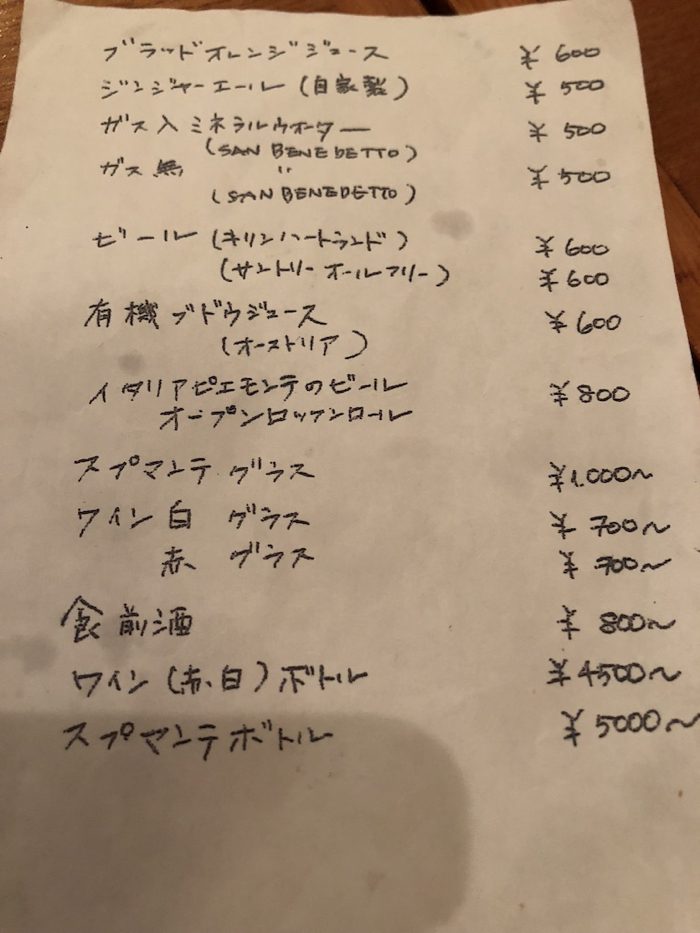 ブラッドオレンジジュース ¥600
ジンジャーエール (自家製) ¥500
ガス入ミネラルウオーター ¥500
(SAN BENEDETTO)
ガス無 〃 ¥500
(SAN BENEDETTO)
ビール (キリンハートランド) ¥600
(サントリーオールフリー) ¥600
有機ブドウジュース ¥600
(オーストリア)
イタリアピエモンテのビール ¥800
オープンロックンロール
スプマンテ グラス ¥1.000〜
ワイン 白 グラス ¥700〜
赤 グラス ¥700〜
食前酒 ¥800〜
ワイン (赤、白) ボトル ¥4500〜
スプマンテボトル ¥5000〜